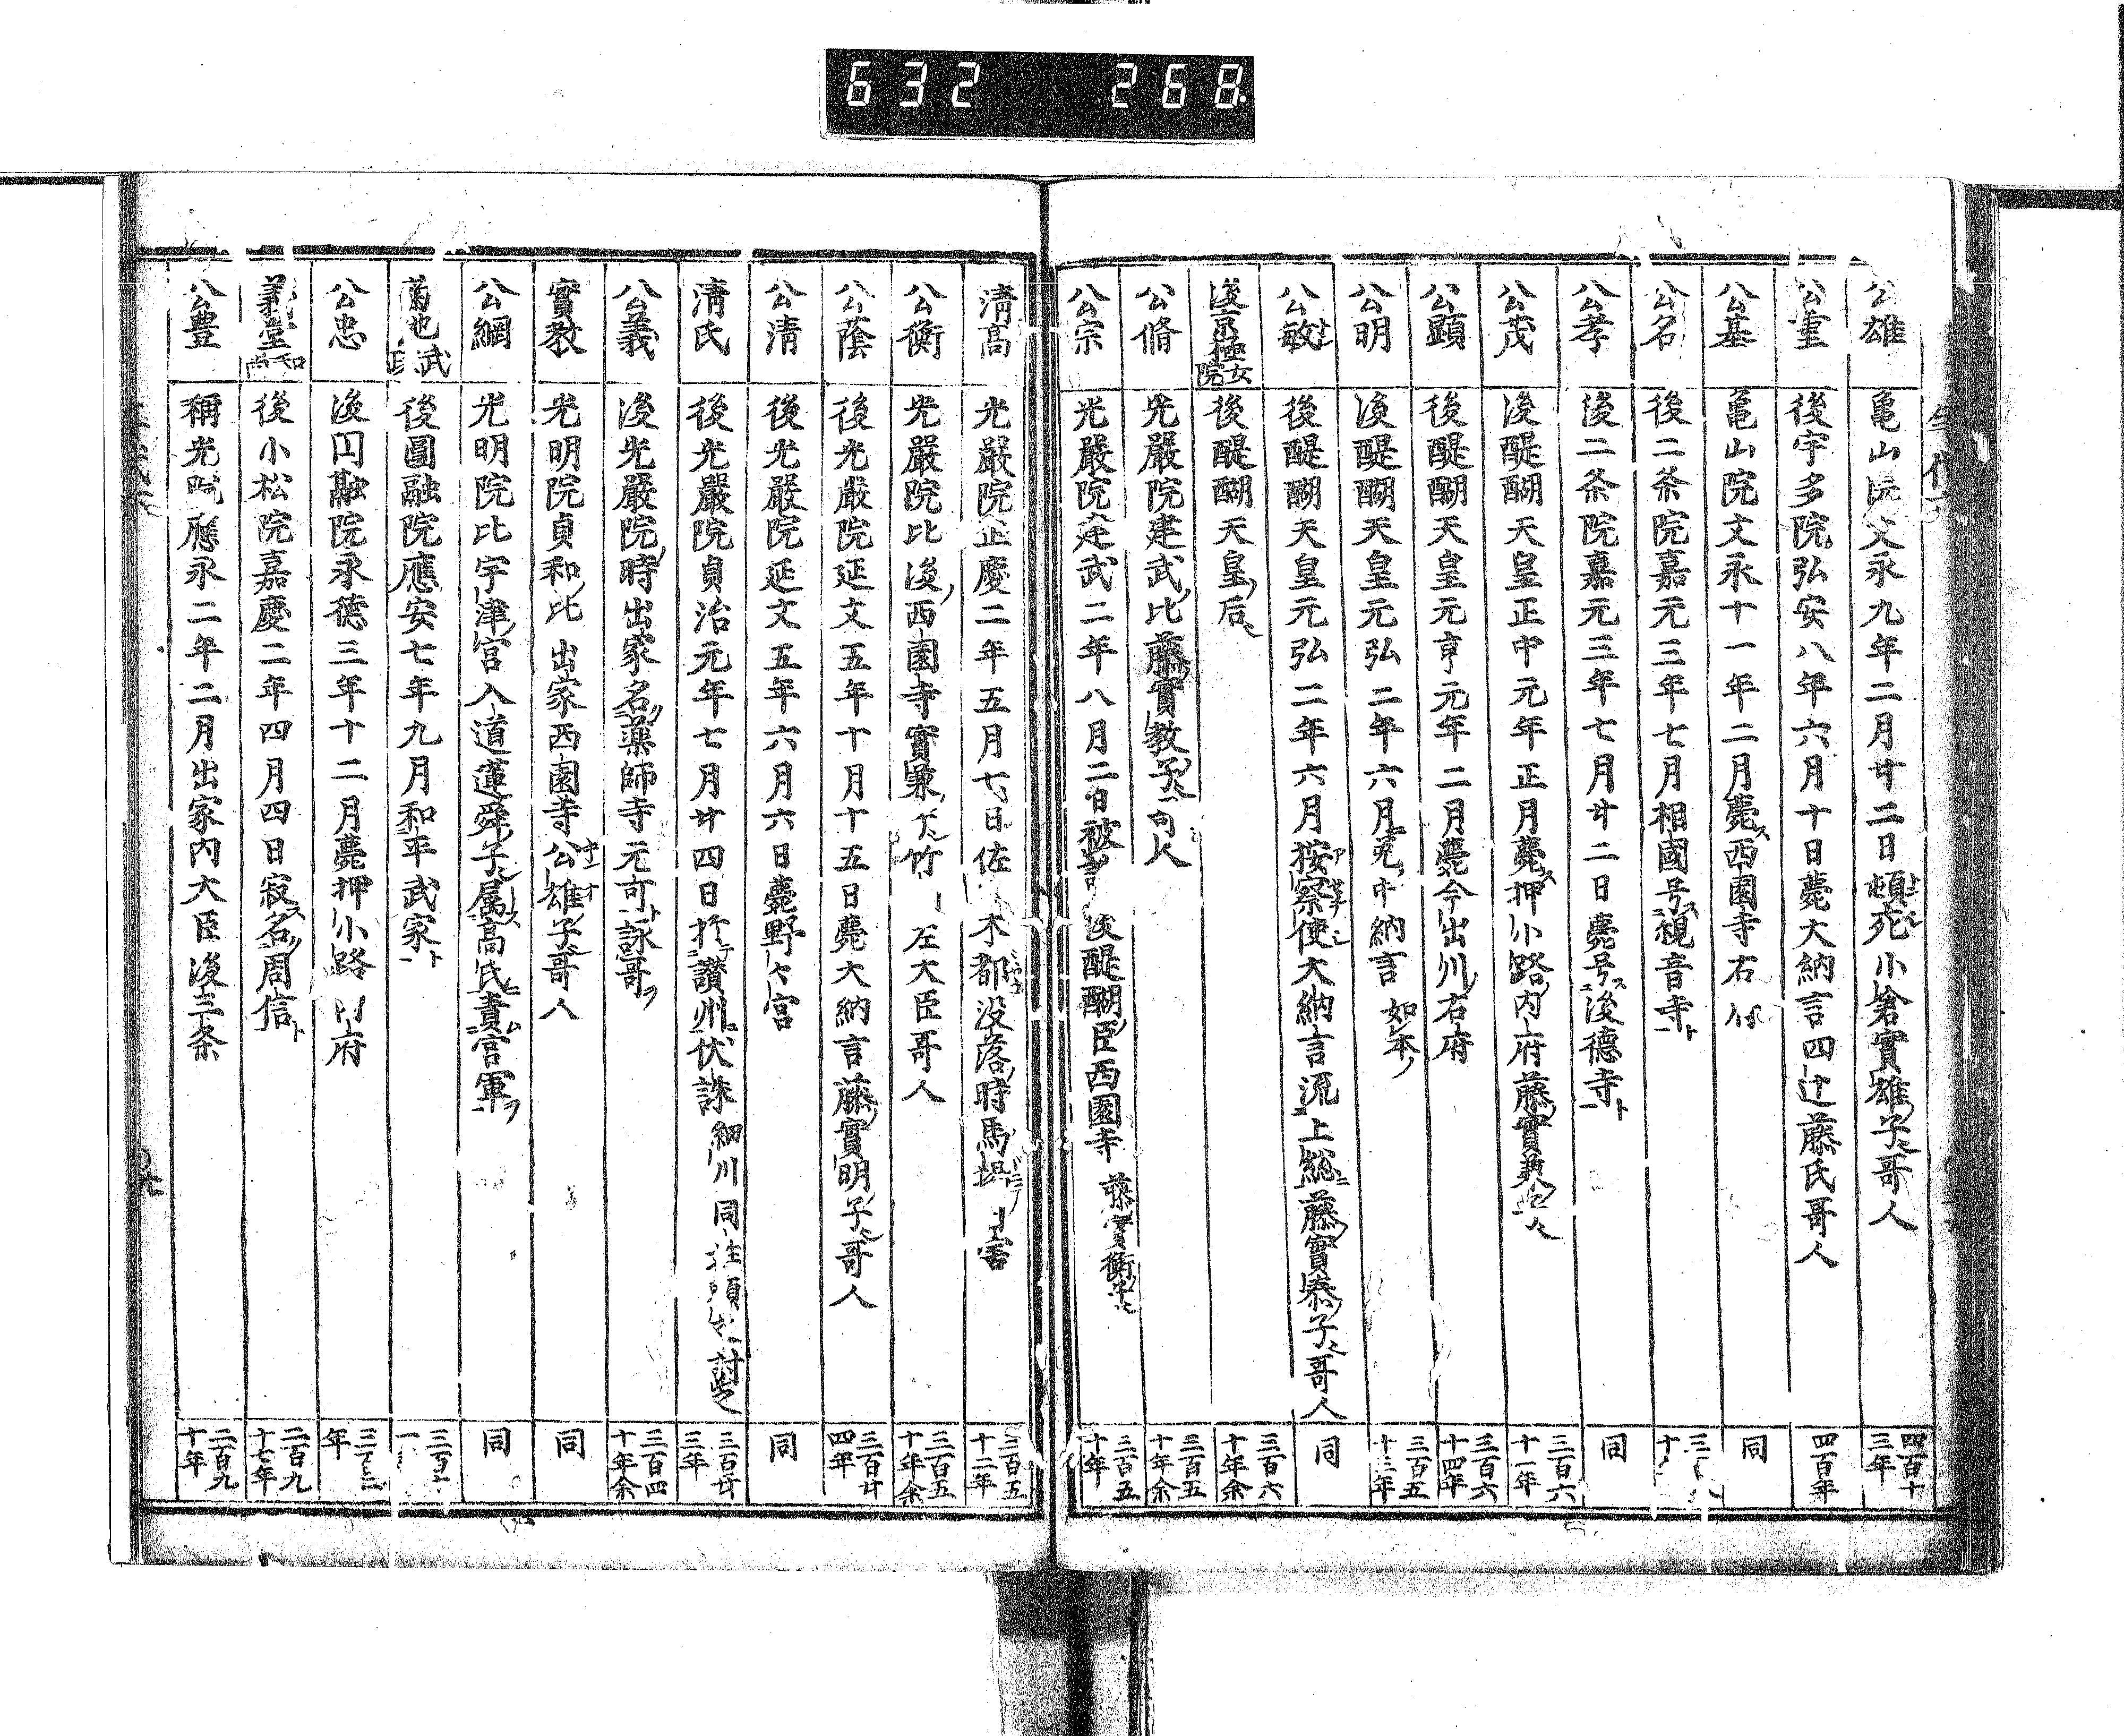 632 268
公雄 亀山 文永九年二月廿二日頓死小倉實雄子哥人 四百十三年
公重 後宇多院弘安八年六月十日薨大納言四辻藤氏哥人 四百年
公基 亀山院文永十一年二月薨ス西園寺右 同
公名 後二条院嘉元三年七月相國号ス観音寺ト
公孝 後二条院嘉元三年七月廿二日薨号ス後德寺ト 同
公茂 後醍醐天皇正中元年正月薨ス押小路内府藤實兼 三百六十一年
公顕 後醍醐天皇元亨元年二月薨今出川右府 三百六十四年
公明 後醍醐天皇元弘二年六月 中納言 三百五十三年
公敏 後醍醐天皇元弘二年六月按察使大納言流上総ニ藤實泰子哥人 同
後京極女院 後醍醐天皇ノ后 三百六十年余
公脩 光嚴院建武ノ比藤實教子哥人 三百五十年余
公宗 光嚴院建武二年八月二日被誅 後醍醐臣西園寺 藤實衡子 三百五十年
清高 光嚴院正慶二年五月七日佐 木都没落時馬場 害 三百五十二年
公衡 光嚴院比後ノ西園寺實兼ノ 竹 左大臣哥人 三百五十年余
公蔭 後光嚴院延文五年十月十五日薨大納言藤實明子哥人 三百廿四年
公清 後光嚴院延文五年六月六日薨野々宮 同
清氏 後光嚴院貞治元年七月廿四日於テ讃州ニ伏誅 細川同 頼 討之 三百廿三年
公義 後光嚴院ノ時出家名ノ薬師寺元可ト詠哥ヲ 三百四十年余
實教 光明院貞和ノ比出家西園寺公雄子哥人 同
公綱 光明院比宇津ノ宮入道蓮舜ノ子属ス高氏ニ責ム官軍ヲ 同
菊也武 後圓融院應安七年九月和平武家ト
公忠 後円融院永德三年十二月薨押小路 府
義堂和尚 後小松院嘉慶二年四月四日寂ス名ノ周信ト 二百九十七年
公豊 稱光 應永二年二月出家内大臣後三条 二百九十年